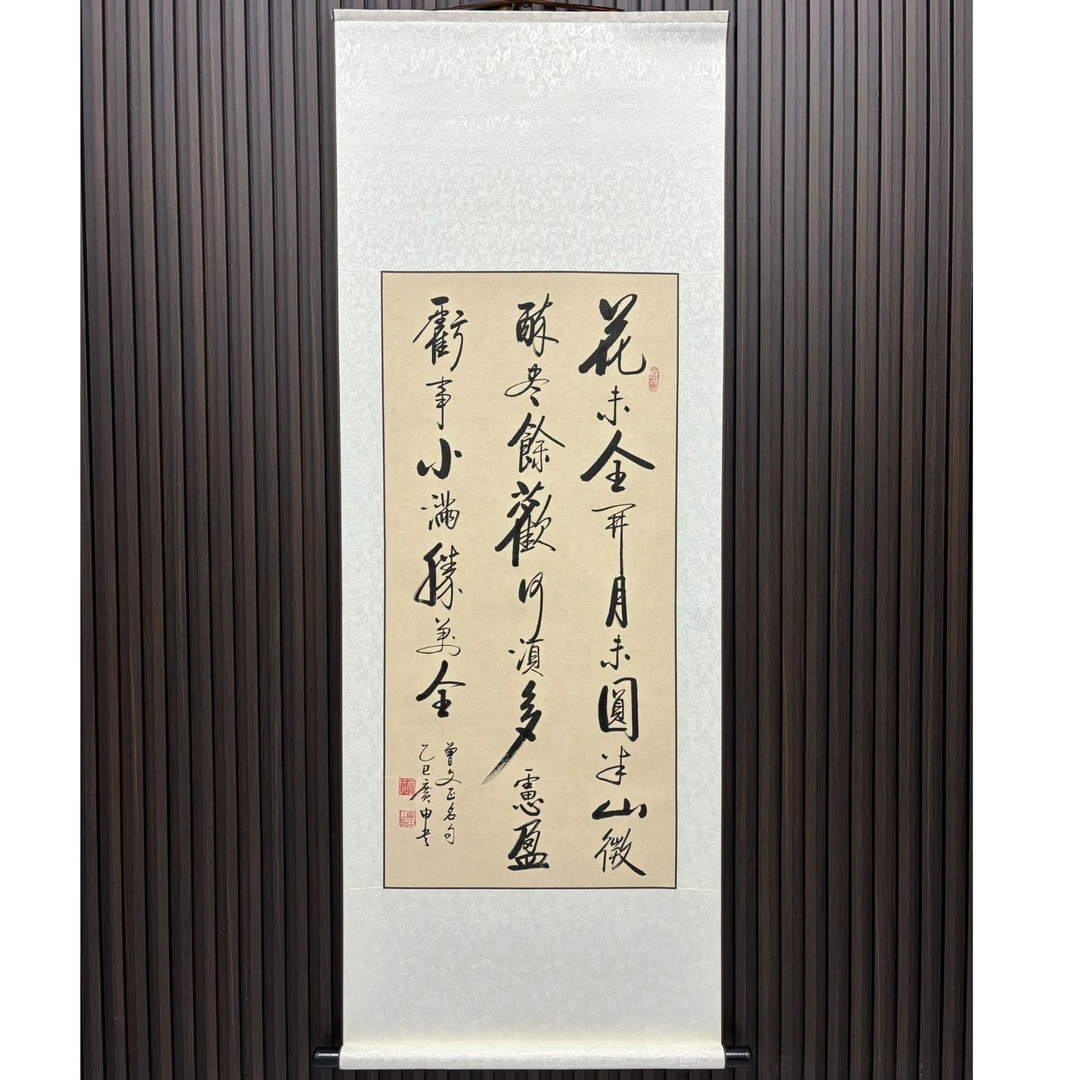 花未全開月未圓半山微
醉盡餘歡何須多慮盈
虧事小滿勝萬全
曾文正名句
乙巳廣申書